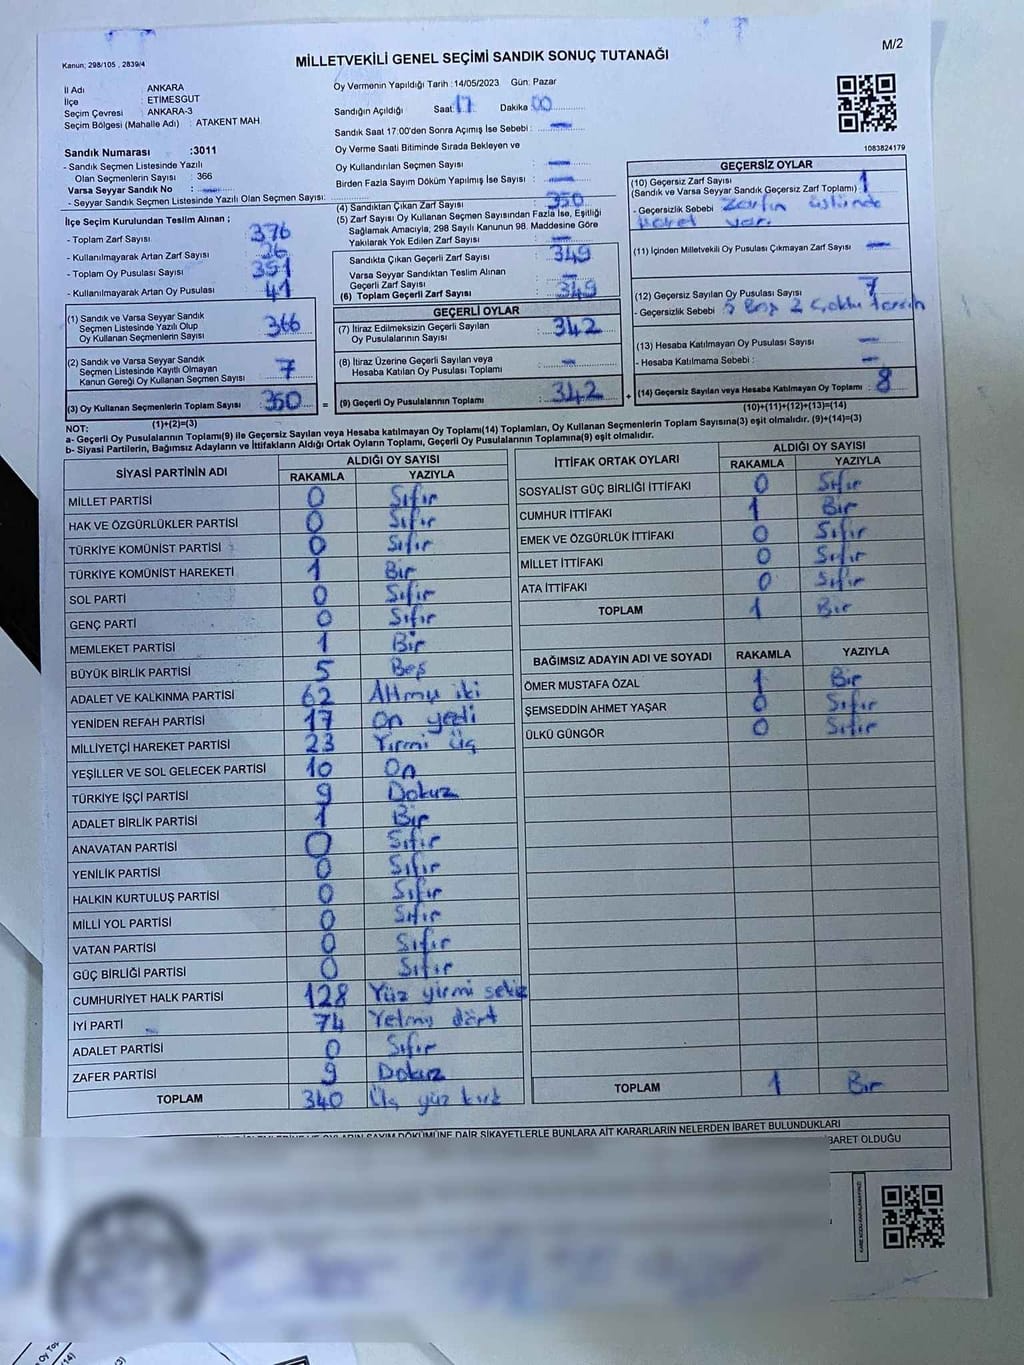 M/2
Kanun; 298/105 , 2839/4
MİLLETVEKİLİ GENEL SEÇİMİ SANDIK SONUÇ TUTANAĞI
İl Adı ANKARA
İlçe ETİMESGUT
Seçim Çevresi ANKARA-3
Seçim Bölgesi (Mahalle Adı) : ATAKENT MAH.
Oy Vermenin Yapıldığı Tarih : 14/05/2023 Gün: Pazar
Sandığın Açıldığı Saat: 17 Dakika: 00
Sandık Saat 17.00'den Sonra Açımış İse Sebebi : —
Oy Verme Saati Bitiminde Sırada Bekleyen ve
Oy Kullandırılan Seçmen Sayısı : —
Birden Fazla Sayım Döküm Yapılmış İse Sayısı : —
1083824179
Sandık Numarası :3011
- Sandık Seçmen Listesinde Yazılı
Olan Seçmenlerin Sayısı : 366
Varsa Seyyar Sandık No : —
- Seyyar Sandık Seçmen Listesinde Yazılı Olan Seçmen Sayısı:
İlçe Seçim Kurulundan Teslim Alınan ;
- Toplam Zarf Sayısı 376
- Kullanılmayarak Artan Zarf Sayısı 26
- Toplam Oy Pusulası Sayısı 391
- Kullanılmayarak Artan Oy Pusulası 41
(1) Sandık ve Varsa Seyyar Sandık
Seçmen Listesinde Yazılı Olup
Oy Kullanan Seçmenlerin Sayısı 366
(2) Sandık ve Varsa Seyyar Sandık
Seçmen Listesinde Kayıtlı Olmayan
Kanun Gereği Oy Kullanan Seçmen Sayısı 7
(3) Oy Kullanan Seçmenlerin Toplam Sayısı 350
(1)+(2)=(3)
(4) Sandıktan Çıkan Zarf Sayısı : 350
(5) Zarf Sayısı Oy Kullanan Seçmen Sayısından Fazla İse, Eşitliği
Sağlamak Amacıyla; 298 Sayılı Kanunun 98. Maddesine Göre
Yakılarak Yok Edilen Zarf Sayısı : —
Sandıkta Çıkan Geçerli Zarf Sayısı : 349
Varsa Seyyar Sandıktan Teslim Alınan
Geçerli Zarf Sayısı : —
(6) Toplam Geçerli Zarf Sayısı : 349
GEÇERLİ OYLAR
(7) İtiraz Edilmeksizin Geçerli Sayılan
Oy Pusulalarının Sayısı : 342
(8) İtiraz Üzerine Geçerli Sayılan veya
Hesaba Katılan Oy Pusulası Toplamı : —
= (9) Geçerli Oy Pusulalarının Toplamı : 342 +
GEÇERSİZ OYLAR
(10) Geçersiz Zarf Sayısı
(Sandık ve Varsa Seyyar Sandık Geçersiz Zarf Toplamı) : 1
- Geçersizlik Sebebi : Zarfın üstünde
var.
(11) İçinden Milletvekili Oy Pusulası Çıkmayan Zarf Sayısı : —
(12) Geçersiz Sayılan Oy Pusulası Sayısı : 7
- Geçersizlik Sebebi : 5 Boş 2 Çoklu tercih
(13) Hesaba Katılmayan Oy Pusulası Sayısı : —
- Hesaba Katılmama Sebebi : —
(14) Geçersiz Sayılan veya Hesaba Katılmayan Oy Toplamı : 8
(10)+(11)+(12)+(13)=(14)
NOT:
a- Geçerli Oy Pusulalarının Toplamı(9) ile Geçersiz Sayılan veya Hesaba katılmayan Oy Toplamı(14) Toplamları, Oy Kullanan Seçmenlerin Toplam Sayısına(3) eşit olmalıdır. (9)+(14)=(3)
b- Siyasi Partilerin, Bağımsız Adayların ve İttifakların Aldığı Ortak Oyların Toplamı, Geçerli Oy Pusulalarının Toplamına(9) eşit olmalıdır.
SİYASİ PARTİNİN ADI ALDIĞI OY SAYISI
RAKAMLA YAZIYLA
MİLLET PARTİSI 0 Sıfır
HAK VE ÖZGÜRLÜKLER PARTİSİ 0 Sıfır
TÜRKİYE KOMÜNİST PARTİSİ 0 Sıfır
TÜRKİYE KOMÜNİST HAREKETİ 1 Bir
SOL PARTİ 0 Sıfır
GENÇ PARTİ 0 Sıfır
MEMLEKET PARTİSİ 1 Bir
BÜYÜK BİRLİK PARTİSİ 5 Beş
ADALET VE KALKINMA PARTİSİ 62 Altmış iki
YENİDEN REFAH PARTİSİ 17 On yedi
MİLLİYETÇİ HAREKET PARTİSİ 23 Yirmi Üç
YEŞİLLER VE SOL GELECEK PARTİSİ 10 On
TÜRKİYE İŞÇİ PARTİSİ 9 Dokuz
ADALET BİRLİK PARTİSİ 1 Bir
ANAVATAN PARTİSİ 0 Sıfır
YENİLİK PARTİSİ 0 Sıfır
HALKIN KURTULUŞ PARTİSİ 0 Sıfır
MİLLİ YOL PARTİSİ 0 Sıfır
VATAN PARTİSİ 0 Sıfır
GÜÇ BİRLİĞİ PARTİSİ 0 Sıfır
CUMHURİYET HALK PARTİSİ 128 Yüz yirmi sekiz
İYİ PARTİ 74 Yetmiş dört
ADALET PARTİSİ 0 Sıfır
ZAFER PARTİSİ 9 Dokuz
TOPLAM 340 Üç yüz kırk
İTTİFAK ORTAK OYLARI ALDIĞI OY SAYISI
RAKAMLA YAZIYLA
SOSYALİST GÜÇ BİRLİĞİ İTTİFAKI 0 Sıfır
CUMHUR İTTİFAKI 1 Bir
EMEK VE ÖZGÜRLÜK İTTİFAKI 0 Sıfır
MİLLET İTTİFAKI 0 Sıfır
ATA İTTİFAKI 0 Sıfır
TOPLAM 1 Bir
BAĞIMSIZ ADAYIN ADI VE SOYADI RAKAMLA YAZIYLA
ÖMER MUSTAFA ÖZAL 1 Bir
ŞEMSEDDİN AHMET YAŞAR 0 Sıfır
ÜLKÜ GÜNGÖR 0 Sıfır
TOPLAM 1 Bir
SAYIM DÖKÜMÜNE DAİR ŞİKAYETLERLE BUNLARA AİT KARARLARIN NELERDEN İBARET BULUNDUKLARI
İBARET OLDUĞU